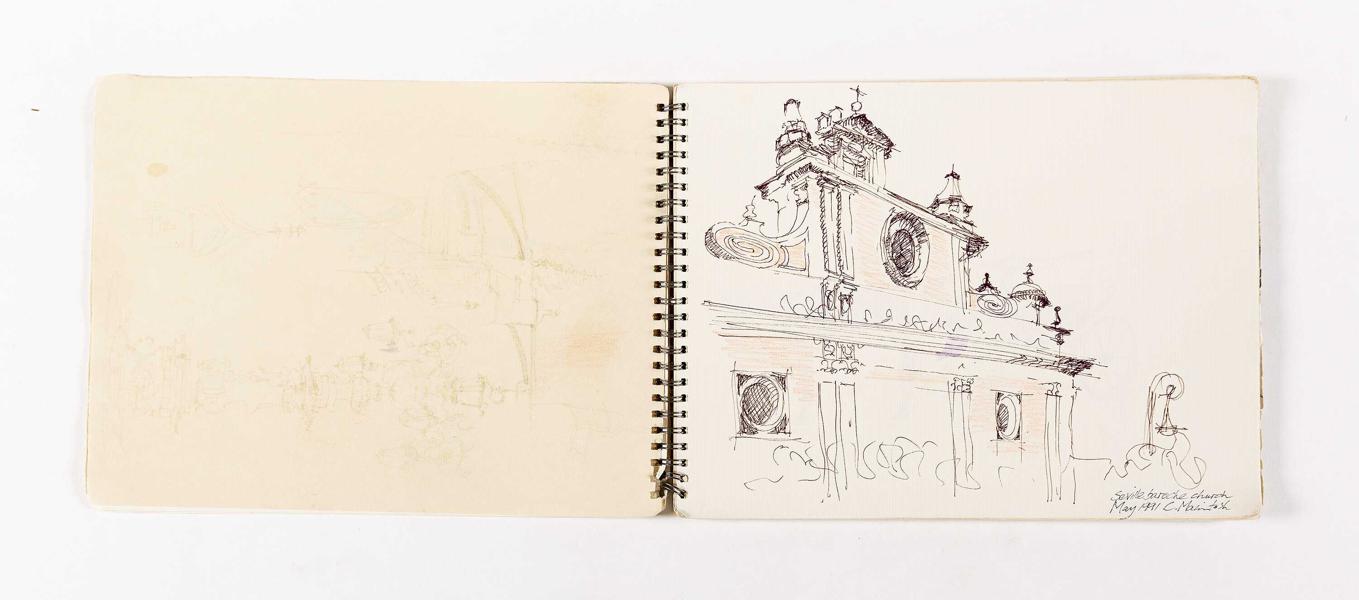 Seville baroche church
May 1991 C. Macintosh